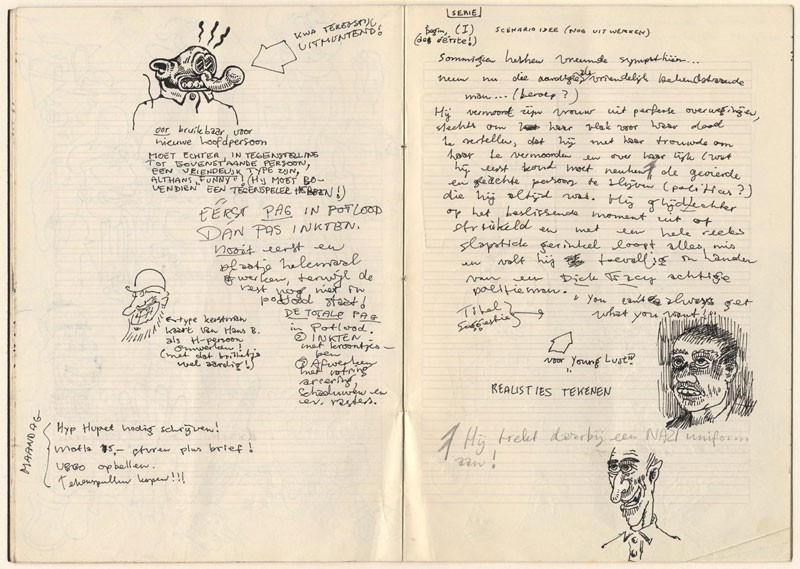 KWA TEKENSTIJL
UITMUNTEND!
oor bruikbaar voor
nieuwe hoofdpersoon
MOET ECHTER, IN TEGENSTELLING
TOT BOVENSTAANDE PERSOON,
EEN VRIENDELIJK TYPE ZIJN,
ALTHANS "FUNNY"! (HIJ MOET BO-
VENDIEN EEN TEGENSPELER HEBBEN!)
EERST PAG IN POTLOOD
DAN PAS INKTEN.
Nooit eerst een
plaatje helemaal
afwerken, terwijl de
rest nog niet in
potlood staat!
DE TOTALE PAG
in potlood.
② INKTEN.
met kroontjes-
pen
③ Afwerken
met rotring
arcering,
schaduwen en
ev. rasters.
type kerstman
kaart van Hans B.
als H-persoon
omwerken!
(met dat brilletje
wel aardig!)
MAANDAG
Hyp Hupet nodig schrijven!
15,- sturen plus brief!
opbellen.
Tekenspullen kopen!!!
SERIE
Begin, (I)
(de eerste!)
SCENARIO IDEE (NOG UITWERKEN)
Sommigen hebben vreemde
neem nu die aardige, vriendelijk
man... (beroep?)
Hij vermoord zijn vrouw uit perfekte overwegingen,
slechts om haar vlak voor haar dood
te vertellen, dat hij met haar trouwde om
haar te vermoorden en over haar lijk (wat
hij eerst koud moet de geëerde
en geachte persoon te blijven (politicus?)
die hij altijd was. Hij glijdt echter
op het beslissende moment uit of
struikeld en met een hele reeks
slapstick gerinkel loopt alles mis
en valt hij toevallig in handen
van een Dick Tracy achtige
politieman.
Titel
Suggestie
"You can't always get
what you want!"
voor Young Lust"
REALISTIES TEKENEN
1 Hij trekt daarbij een NAZI uniform
aan!